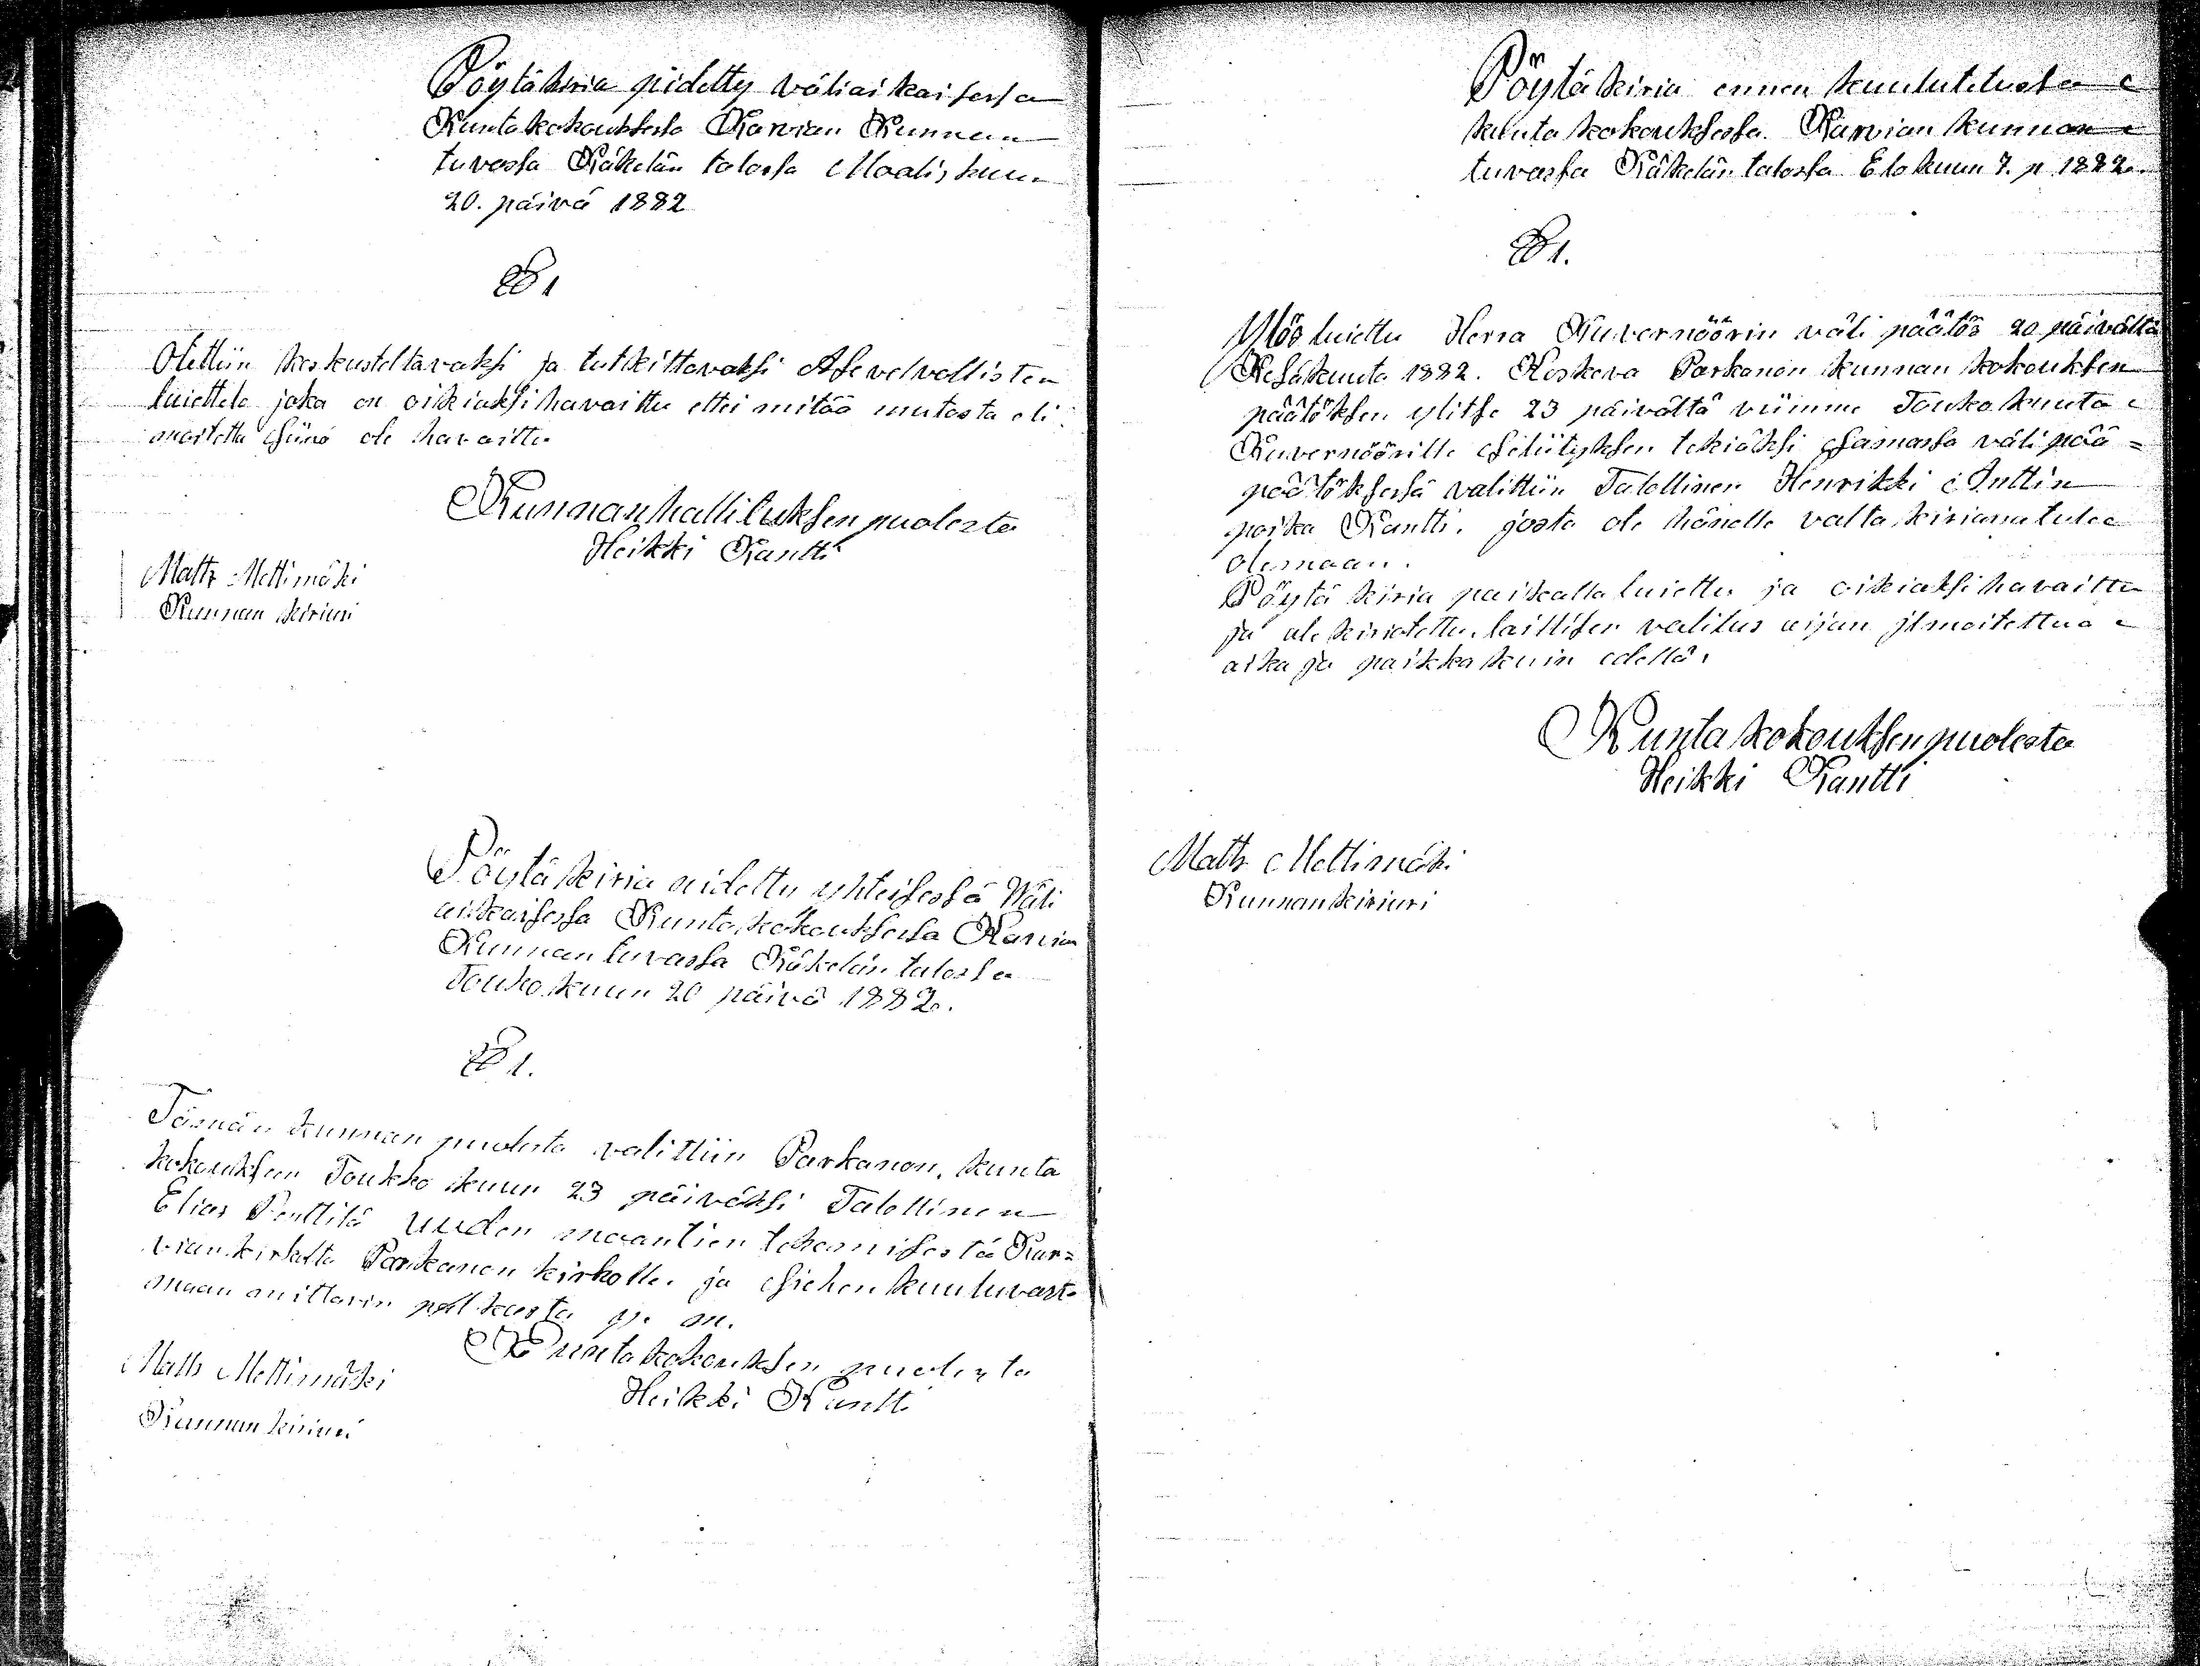 Pöytäkiria pidetty väliaikaisessa
Kuntakokouksessa Karvian Kunnan
tuvassa Käkelän talossa Maaliskuun
20. päivä 1882
§ 1
Otettiin keskusteltavaksi ja tutkittavaksi Asevelvollisten
luiettelo joka on oikiaksi havaittu ettei mitää muutosta eli
moitetta siinä ole havaittu
Kunnanhallituksen puolesta
Heikki Kantti
Matts Mettimäki
Kunnan kiriuri
Pöytäkiria pidetty yhteisessä Väli
aikaisessa Kunta kokouksessa Karvian
Kunnan tuvassa Käkelän talossa
Toukokuun 20 päivä 1882.
§ 1.
Tämän kunnan puolesta valittiin Parkanon kunta
kokouksen Toukko kuun 23 päiväksi Talollinen
Elias Penttilä uuden maantien tekemisestä Kar=
vian kirkolta Parkanon kirkolle. ja siehen kuuluvasta
maan mittarin palkasta y. m.
Kuntakokouksen puolesta
Heikki Kantti
Matts Mettimäki
Kunnan kiriuri
Pöytäkiria ennen kuulutetussa
kuntakokouksessa. Karvian kunnan
tuvassa Käkelän talossa Elokuun 7. p 1882.
§ 1.
Ylös luiettu Herra Kuvernöörin väli päätös 20 päivältä
Kesäkuuta 1882. Koskeva Parkanon kunnan kokouksen
päätöksen ylitse 23 päivältä viimme Toukokuuta
Kuvernöörille selityksen tekiäksi samassa väli pää=
päätöksessä valittiin Talollinen Henrikki Anttin
poika Kantti. josta ole hänelle valta kirianatulee
olemaan.
Pöytä kiria paikalla luiettu ja oikiaksi havaittu
ja ale kiriotettu. laillisen valitus aijan jlmoitettua
aika ja paikka kuin edellä.
Kunta kokouksen puolesta
Heikki Kantti
Matts Mettimäki
Kunnankiriuri